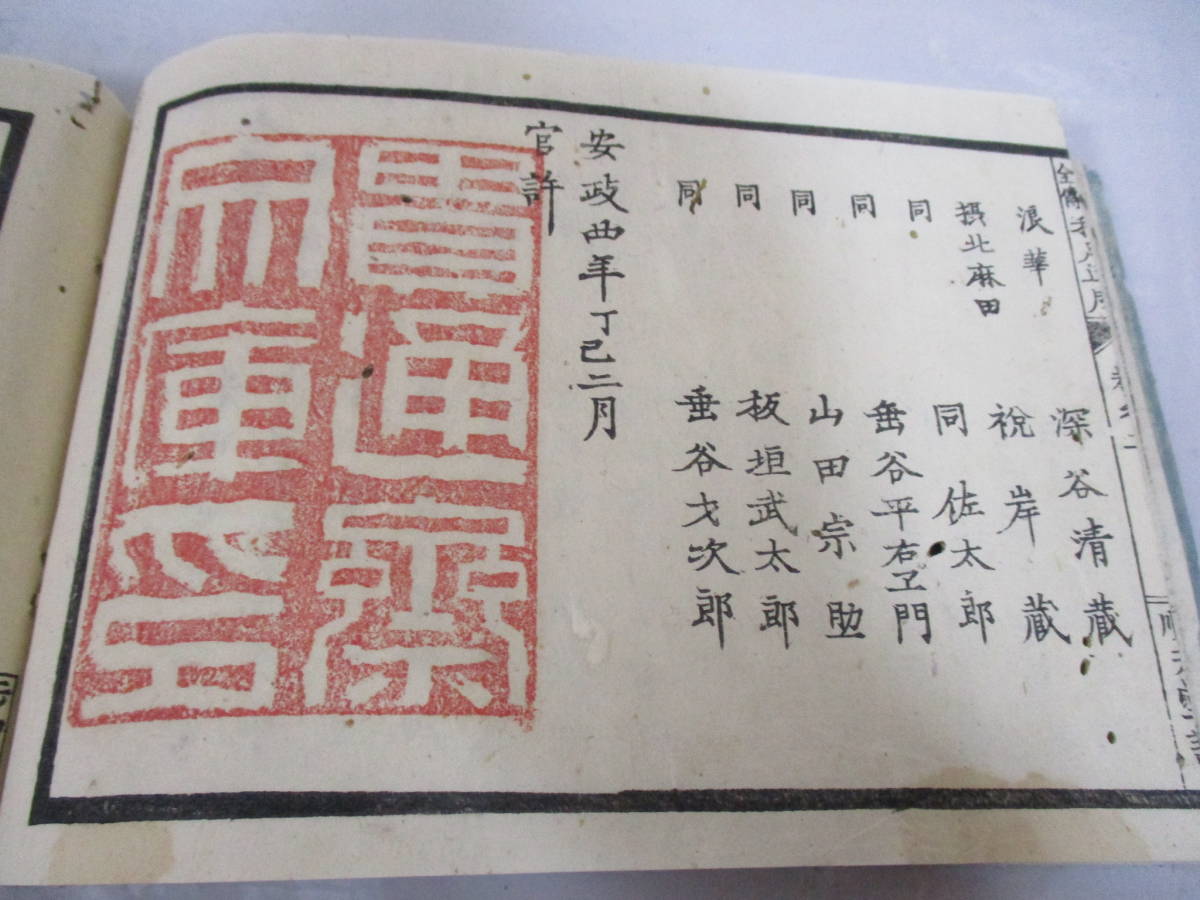 全傳
浪華 深谷清蔵
摂北麻田 祝岸蔵
同 同佐太郎
同 垂谷平右ヱ門
同 山田宗助
同 板垣武太郎
同 垂谷才次郎
安政四年丁巳二月
官許
通齋
庫印